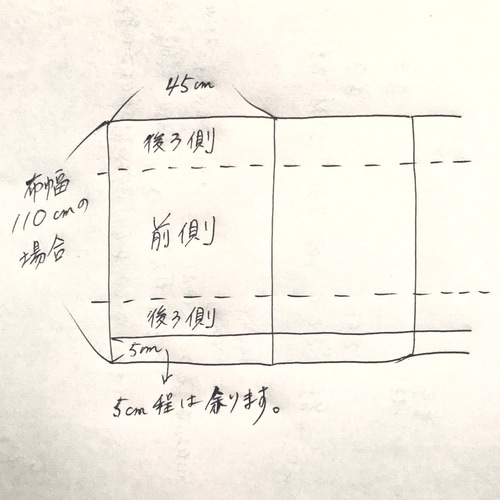 45cm
後ろ側
布幅
110cmの
場合
前側
後ろ側
5cm
5cm程は余ります。